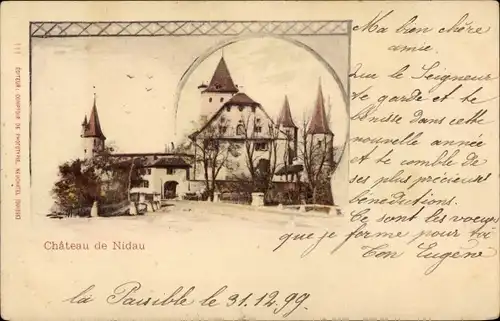 111 EDITEUR: COMPTOIR DE PHOTOTYPIE, NEUCHATEL (SUISSE)
Ma bien chère
amie.
Que le Seigneur
te garde et te
bénisse dans cette
nouvelle année
et te comble de
ses plus précieuses
bénédictions.
Ce sont les voeux
que je forme pour toi
Ton Eugène
Château de Nidau
la Paisible le 31.12.99.